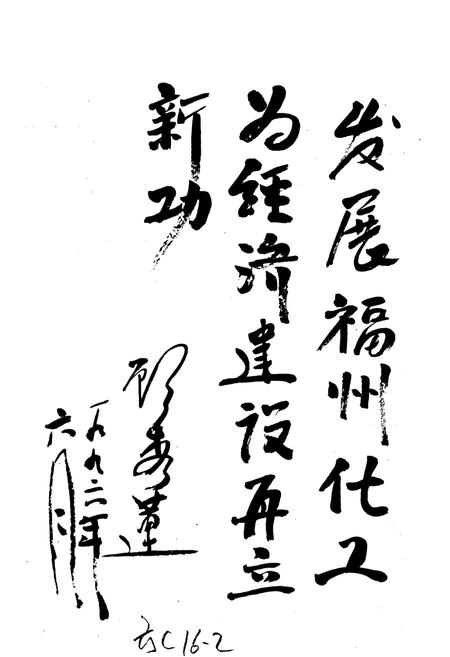 发展福州化工
为經济建设再立
新功
顾秀莲
一九九六年
六月
C16-2